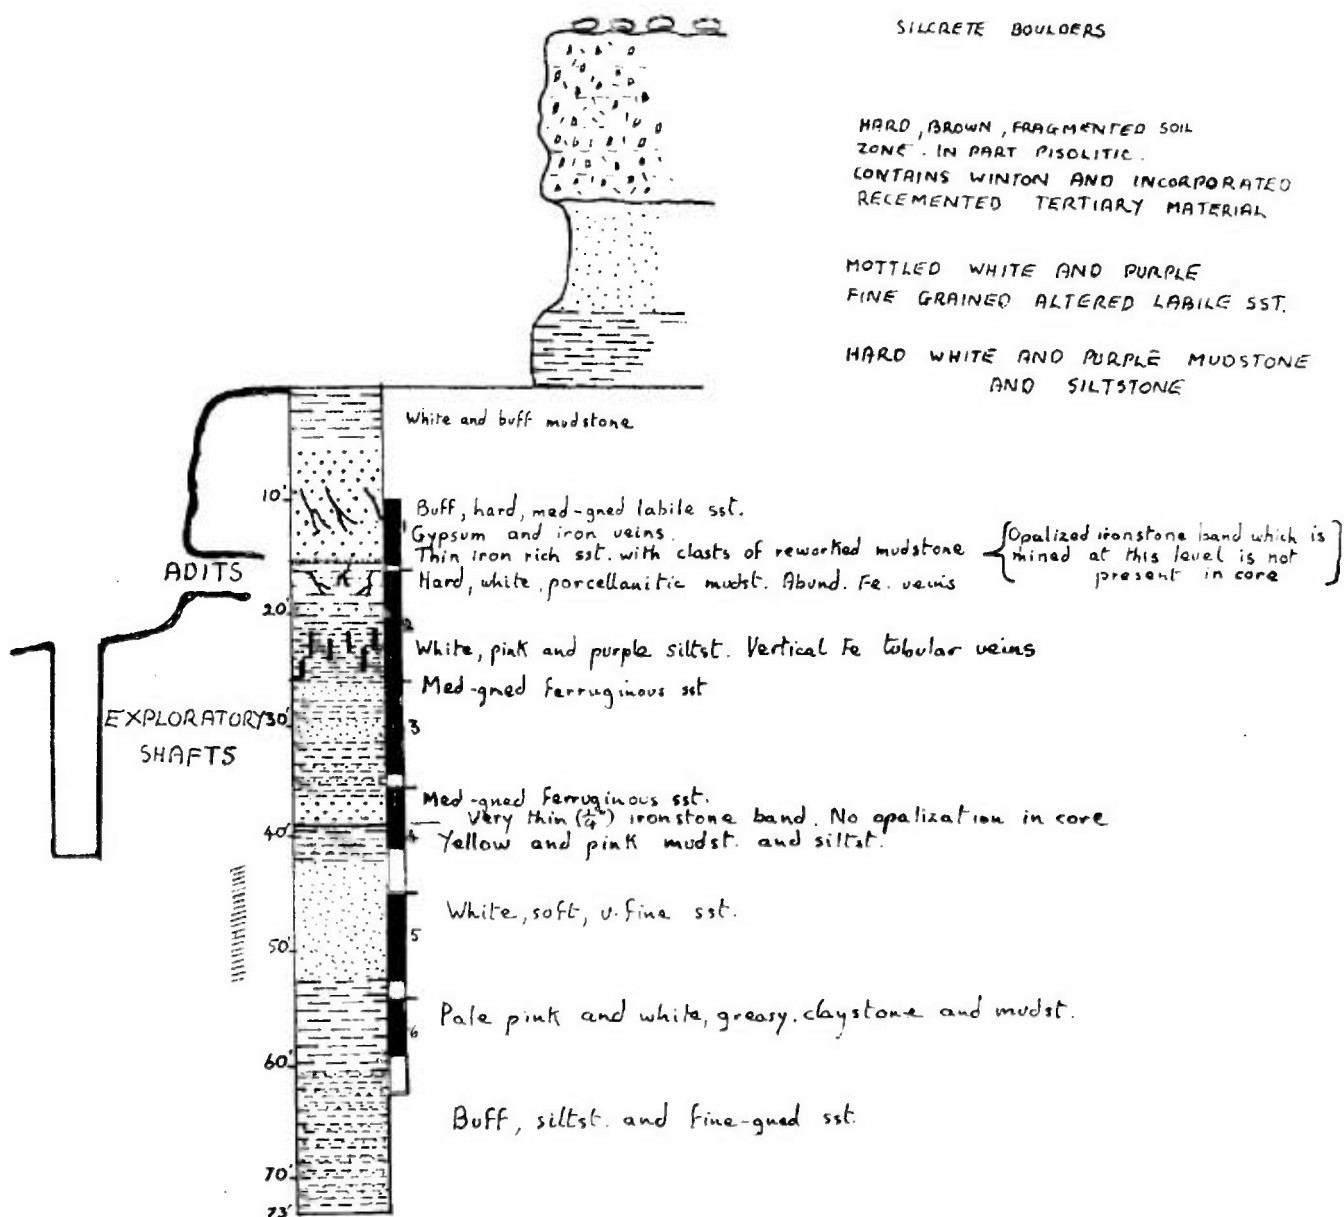 SILCRETE BOULDERS
HARD, BROWN, FRAGMENTED SOIL
ZONE. IN PART PISOLITIC.
CONTAINS WINTON AND INCORPORATED
RECEMENTED TERTIARY MATERIAL
MOTTLED WHITE AND PURPLE
FINE GRAINED ALTERED LABILE SST.
HARD WHITE AND PURPLE MUDSTONE
AND SILTSTONE
White and buff mudstone
10'
Buff, hard, med-gned labile sst.
1
Gypsum and iron veins.
Thin iron rich sst. with clasts of reworked mudstone
Opalized ironstone band which is
mined at this level is not
present in core
ADITS
Hard, white, porcellanitic mudst. Abund. Fe. veins
20'
2
White, pink and purple siltst. Vertical Fe tubular veins
Med-gned ferruginous sst
EXPLORATORY
SHAFTS
30'
3
Med-gned ferruginous sst.
Very thin (1/4") ironstone band. No opalization in core
40'
4
Yellow and pink mudst. and siltst.
White, soft, v. fine sst.
5
50'
Pale pink and white, greasy, claystone and mudst.
6
60'
Buff, siltst. and fine-gned sst.
70'
73'